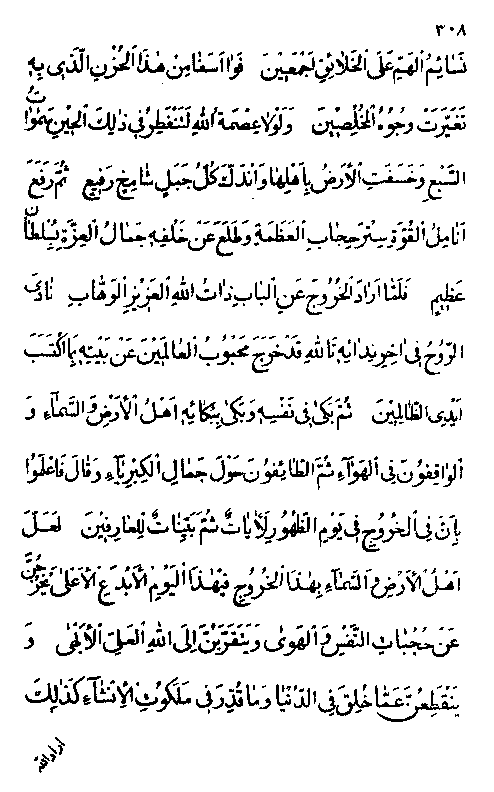 ٣٠٨
نَسَائِمُ الهَمِّ عَلَى الخَلَائِقِ اَجْمَعِيْنَ فَوَا اَسَفَا مِنْ هٰذَا الحُزْنِ الَّذِى بِهِ
تَغَيَّرَتْ وُجُوْهُ المُخْلِصِيْنَ وَلَوْلَا عِصْمَةُ اللهِ لَتَنْفَطِرُ فِى ذٰلِكَ الحِيْنِ سَمٰوَاتُ
السَّبْعِ وَخَسَفَتِ الاَرْضُ بِاَهْلِهَا وَانْدَكَّ كُلُّ جَبَلٍ شَامِخٍ رَفِيْعٍ ثُمَّ رَفَعَ
اَنَامِلُ القُوَّةِ سِتْرَ حِجَابِ العَظَمَةِ وَطَلَعَ عَنْ خَلْفِهِ جَمَالُ العِزَّةِ بِسُلْطَانٍ
عَظِيْمٍ فَلَمَّا اَرَادَ الخُرُوْجَ عَنِ البَابِ ذَاتُ اللهِ العَزِيْزِ الوَهَّابِ نَادَى
الرُّوْحُ فِى اٰخِرِ نِدَائِهِ تَاللهِ قَدْ خَرَجَ مَحْبُوْبُ العَالَمِيْنَ عَنْ بَيْتِهِ بِمَا اكْتَسَبَ
اَيْدِى الظَّالِمِيْنَ ثُمَّ بَكٰى فِى نَفْسِهِ وَبَكٰى بِبُكَائِهِ اَهْلُ الاَرْضِ وَالسَّمَاءِ وَ
الوَاقِفُوْنَ فِى الهَوَاءِ ثُمَّ الطَّائِفُوْنَ حَوْلَ جَمَالِ الكِبْرِيَاءِ وَقَالَ فَاعْلَمُوْا
بِاَنَّ فِى الخُرُوْجِ فِى يَوْمِ الظُّهُوْرِ لَاٰيَاتٌ ثُمَّ بَيِّنَاتٌ لِلعَارِفِيْنَ لَعَلَّ
اَهْلُ الاَرْضِ وَالسَّمَاءِ بِهٰذَا الخُرُوْجِ فِى هٰذَا اليَوْمِ الاَبْدَعِ الاَعْلٰى يَخْرُجُنَّ
عَنْ حُجُبَاتِ النَّفْسِ وَالهَوٰى وَيَتَقَرَّبُنَّ اِلَى اللهِ العَلِىِّ الاَبْهٰى وَ
يَنْقَطِعُنَّ عَمَّا خُلِقَ فِى الدُّنْيَا وَمَا قُدِرَ فِى مَلَكُوْتِ الاِنْشَاءِ كَذٰلِكَ
اراد الله